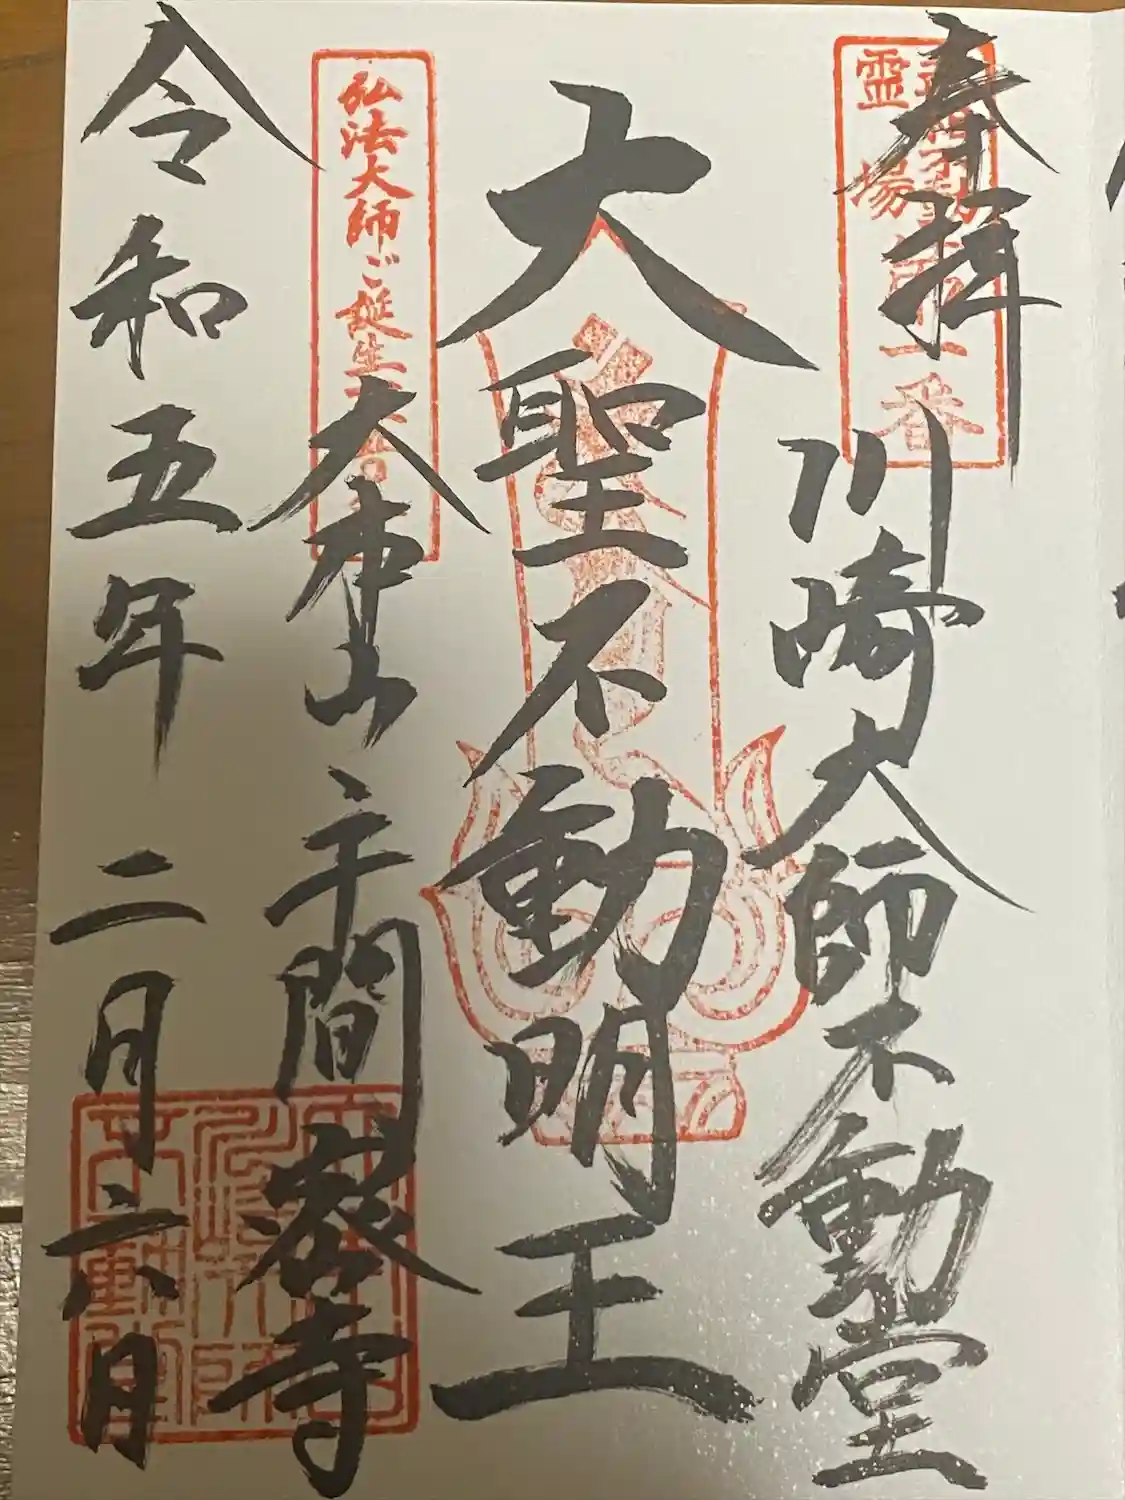 奉拝
霊場
一番
川崎大師不動堂
大聖不動明王
弘法大師ご誕生
大本山平間密寺
令和五年二月六日